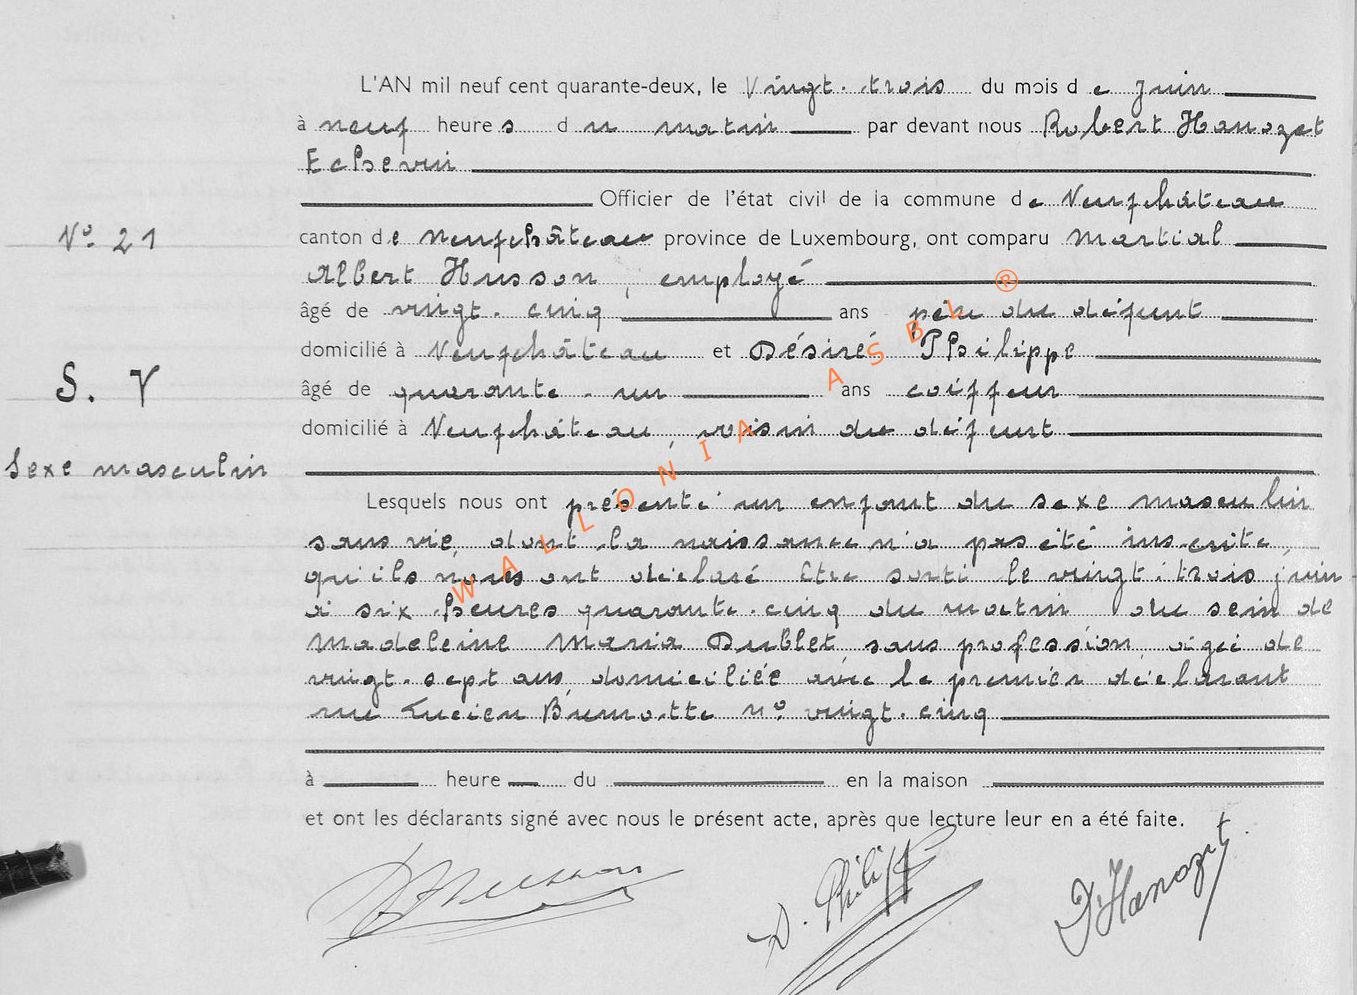 L'AN mil neuf cent quarante-deux, le Vingt-trois du mois de Juin
à neuf heures du matin par devant nous Robert Hanozet
Echevin
Officier de l'état civil de la commune de Neufchâteau
N° 21
canton de Neufchâteau province de Luxembourg, ont comparu Martial
Albert Husson, employé
âgé de vingt-cinq ans père du défunt
domicilié à Neufchâteau et Désiré Philippe
S. V
âgé de quarante-un ans coiffeur
domicilié à Neufchâteau, voisin du défunt
Sexe masculin
Lesquels nous ont présenté un enfant du sexe masculin
sans vie, dont la naissance n'a pas été inscrite,
qu'ils nous ont déclaré être sorti le vingt-trois juin
à six heures quarante-cinq du matin du sein de
Madeleine Maria Dublet sans profession, âgée de
vingt-sept ans, domiciliée avec le premier déclarant
rue Lucien Burnotte n° vingt-cinq
à heure du en la maison
et ont les déclarants signé avec nous le présent acte, après que lecture leur en a été faite.
Husson D. Philipp Hanozet
WALLONIA ASBL ®